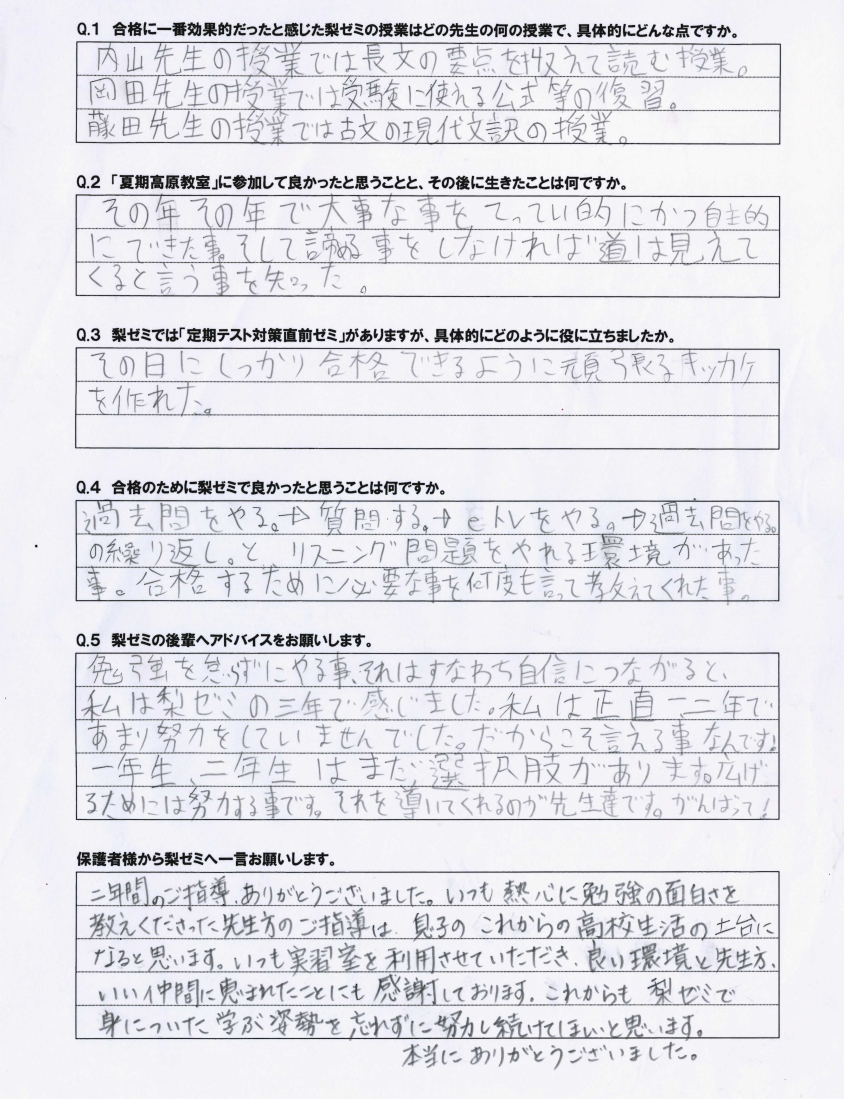 Q.1 合格に一番効果的だったと感じた梨ゼミの授業はどの先生の何の授業で、具体的にどんな点ですか。
内山先生の授業では長文の要点を抑えて読む授業。
岡田先生の授業では受験に使える公式等の復習。
藤田先生の授業では古文の現代文訳の授業。
Q.2 「夏期高原教室」に参加して良かったと思うことと、その後に生きたことは何ですか。
その年その年で大事な事をてってい的にかつ自主的
にできた事。そして諦める事をしなければ道は見えて
くると言う事を知った。
Q.3 梨ゼミでは「定期テスト対策直前ゼミ」がありますが、具体的にどのように役に立ちましたか。
その日にしっかり合格できるように頑張るキッカケ
を作れた。
Q.4 合格のために梨ゼミで良かったと思うことは何ですか。
過去問をやる。→質問する。→eトレをやる。→過去問をやる。
の繰り返し。と リスニング問題をやれる環境があった
事。合格するために必要な事を何度も言って教えてくれた事。
Q.5 梨ゼミの後輩へアドバイスをお願いします。
勉強を怠らずにやる事、それはすなわち自信につながると、
私は梨ゼミの三年で感じました。私は正直一、二年で
あまり努力をしていませんでした。だからこそ言える事なんです!
一年生、二年生はまだ選択肢があります。広げ
るためには努力する事です。それを導いてくれるのが先生達です。がんばって!
保護者様から梨ゼミへ一言お願いします。
二年間のご指導、ありがとうございました。いつも熱心に勉強の面白さを
教えくださった先生方のご指導は、息子のこれからの高校生活の土台に
なると思います。いつも実習室を利用させていただき、良い環境と先生方、
いい仲間に恵まれたことにも感謝しております。これからも梨ゼミで
身についた学ぶ姿勢を忘れずに努力し続けてほしいと思います。
本当にありがとうございました。